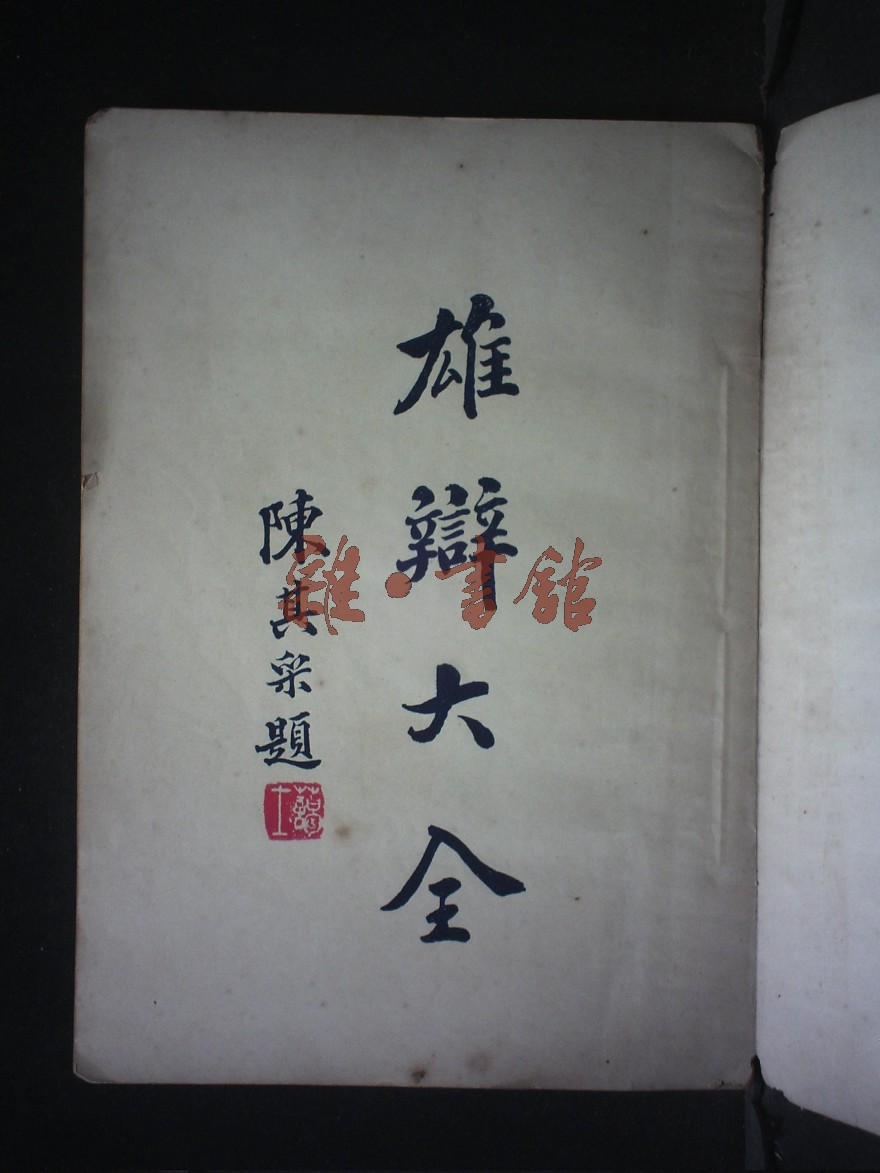 雄辯大全
陳其采題
雜·書館